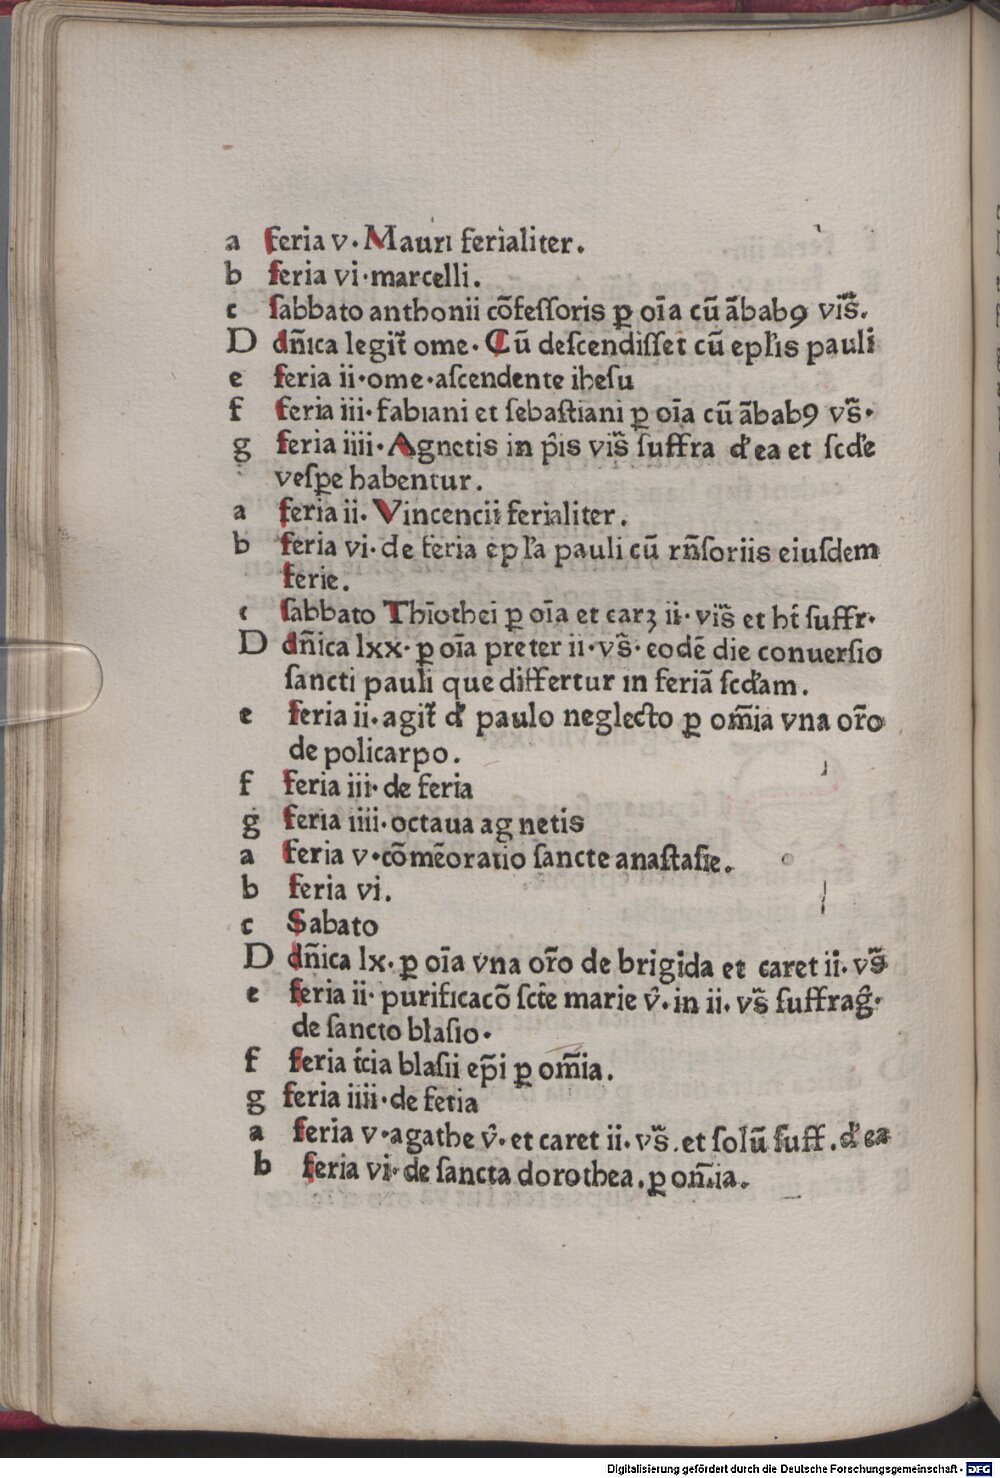 a feria v. Mauri ferialiter.
b feria vi. marcelli.
c ſabbato anthonii cõfeſſoris ꝑ oĩa cũ ãbabꝯ viẽs̃.
D dñica legit̃ ome. Cũ deſcendiſſet cũ epl̃is pauli
e feria ii. ome. aſcendente iheſu
f feria iii. fabiani et ſebaſtiani ꝑ oĩa cũ ãbabꝯ vs̃.
g feria iiii. Agnetis in p̃is vis̃ ſuffra d̓ ea et ſcd̓e
veſꝑe habentur.
a feria ii. Vincencii ferialiter.
b feria vi. de feria epl̃a pauli cũ rñſoriis eiuſdem
ferie.
c ſabbato Thĩothei ꝑ oĩa et carꝫ ii. vis̃ et ht̃ ſuffr.
D dñica lxx. ꝑ oĩa preter ii. vs̃. eodẽ die conuerſio
ſancti pauli que differtur in feriã ſcd̓am.
e feria ii. agit̃ d̓ paulo neglecto ꝑ om̃ia vna or̃o
de policarpo.
f feria iii. de feria
g feria iiii. octaua agnetis
a feria v. cõmẽoratio ſancte anaſtaſie.
b feria vi.
c Sabato
D dñica lx. ꝑ oĩa vna or̃o de brigida et caret ii. vs̃
e feria ii. purificacõ ſct̃e marie v̂. in ii. vs̃ ſuffrag̃.
de ſancto blaſio.
f feria t̃cia blaſii ep̃i ꝑ om̃ia.
g feria iiii. de feria
a feria v. agathe v̂. et caret ii. vs̃. et ſolũ ſuff. d̓ ea
b feria vi. de ſancta dorothea. ꝑ om̃ia.
Digitalisierung gefördert durch die Deutsche Forschungsgemeinschaft - DFG